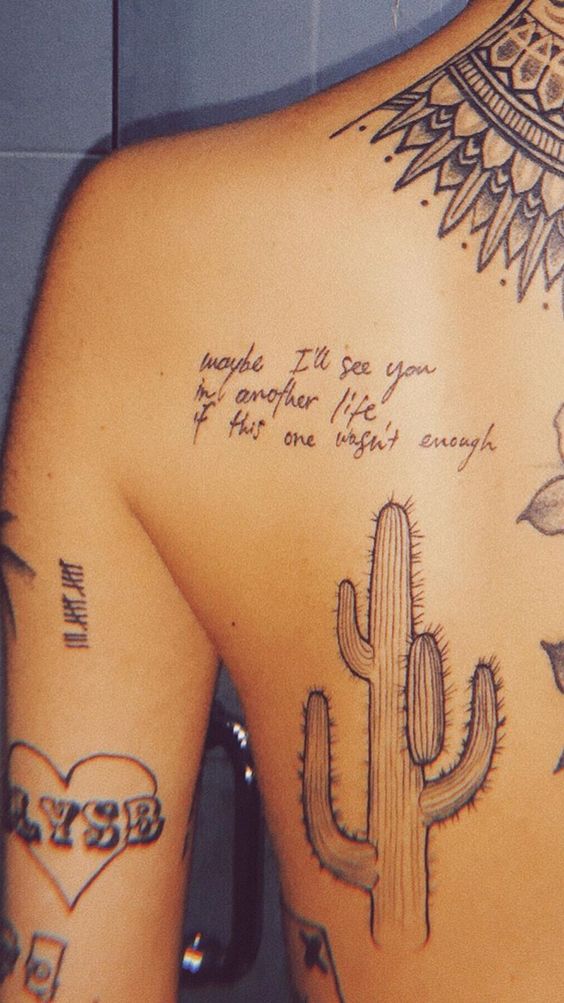 maybe I'll see you
in another life
if this one wasn't enough
LYSB